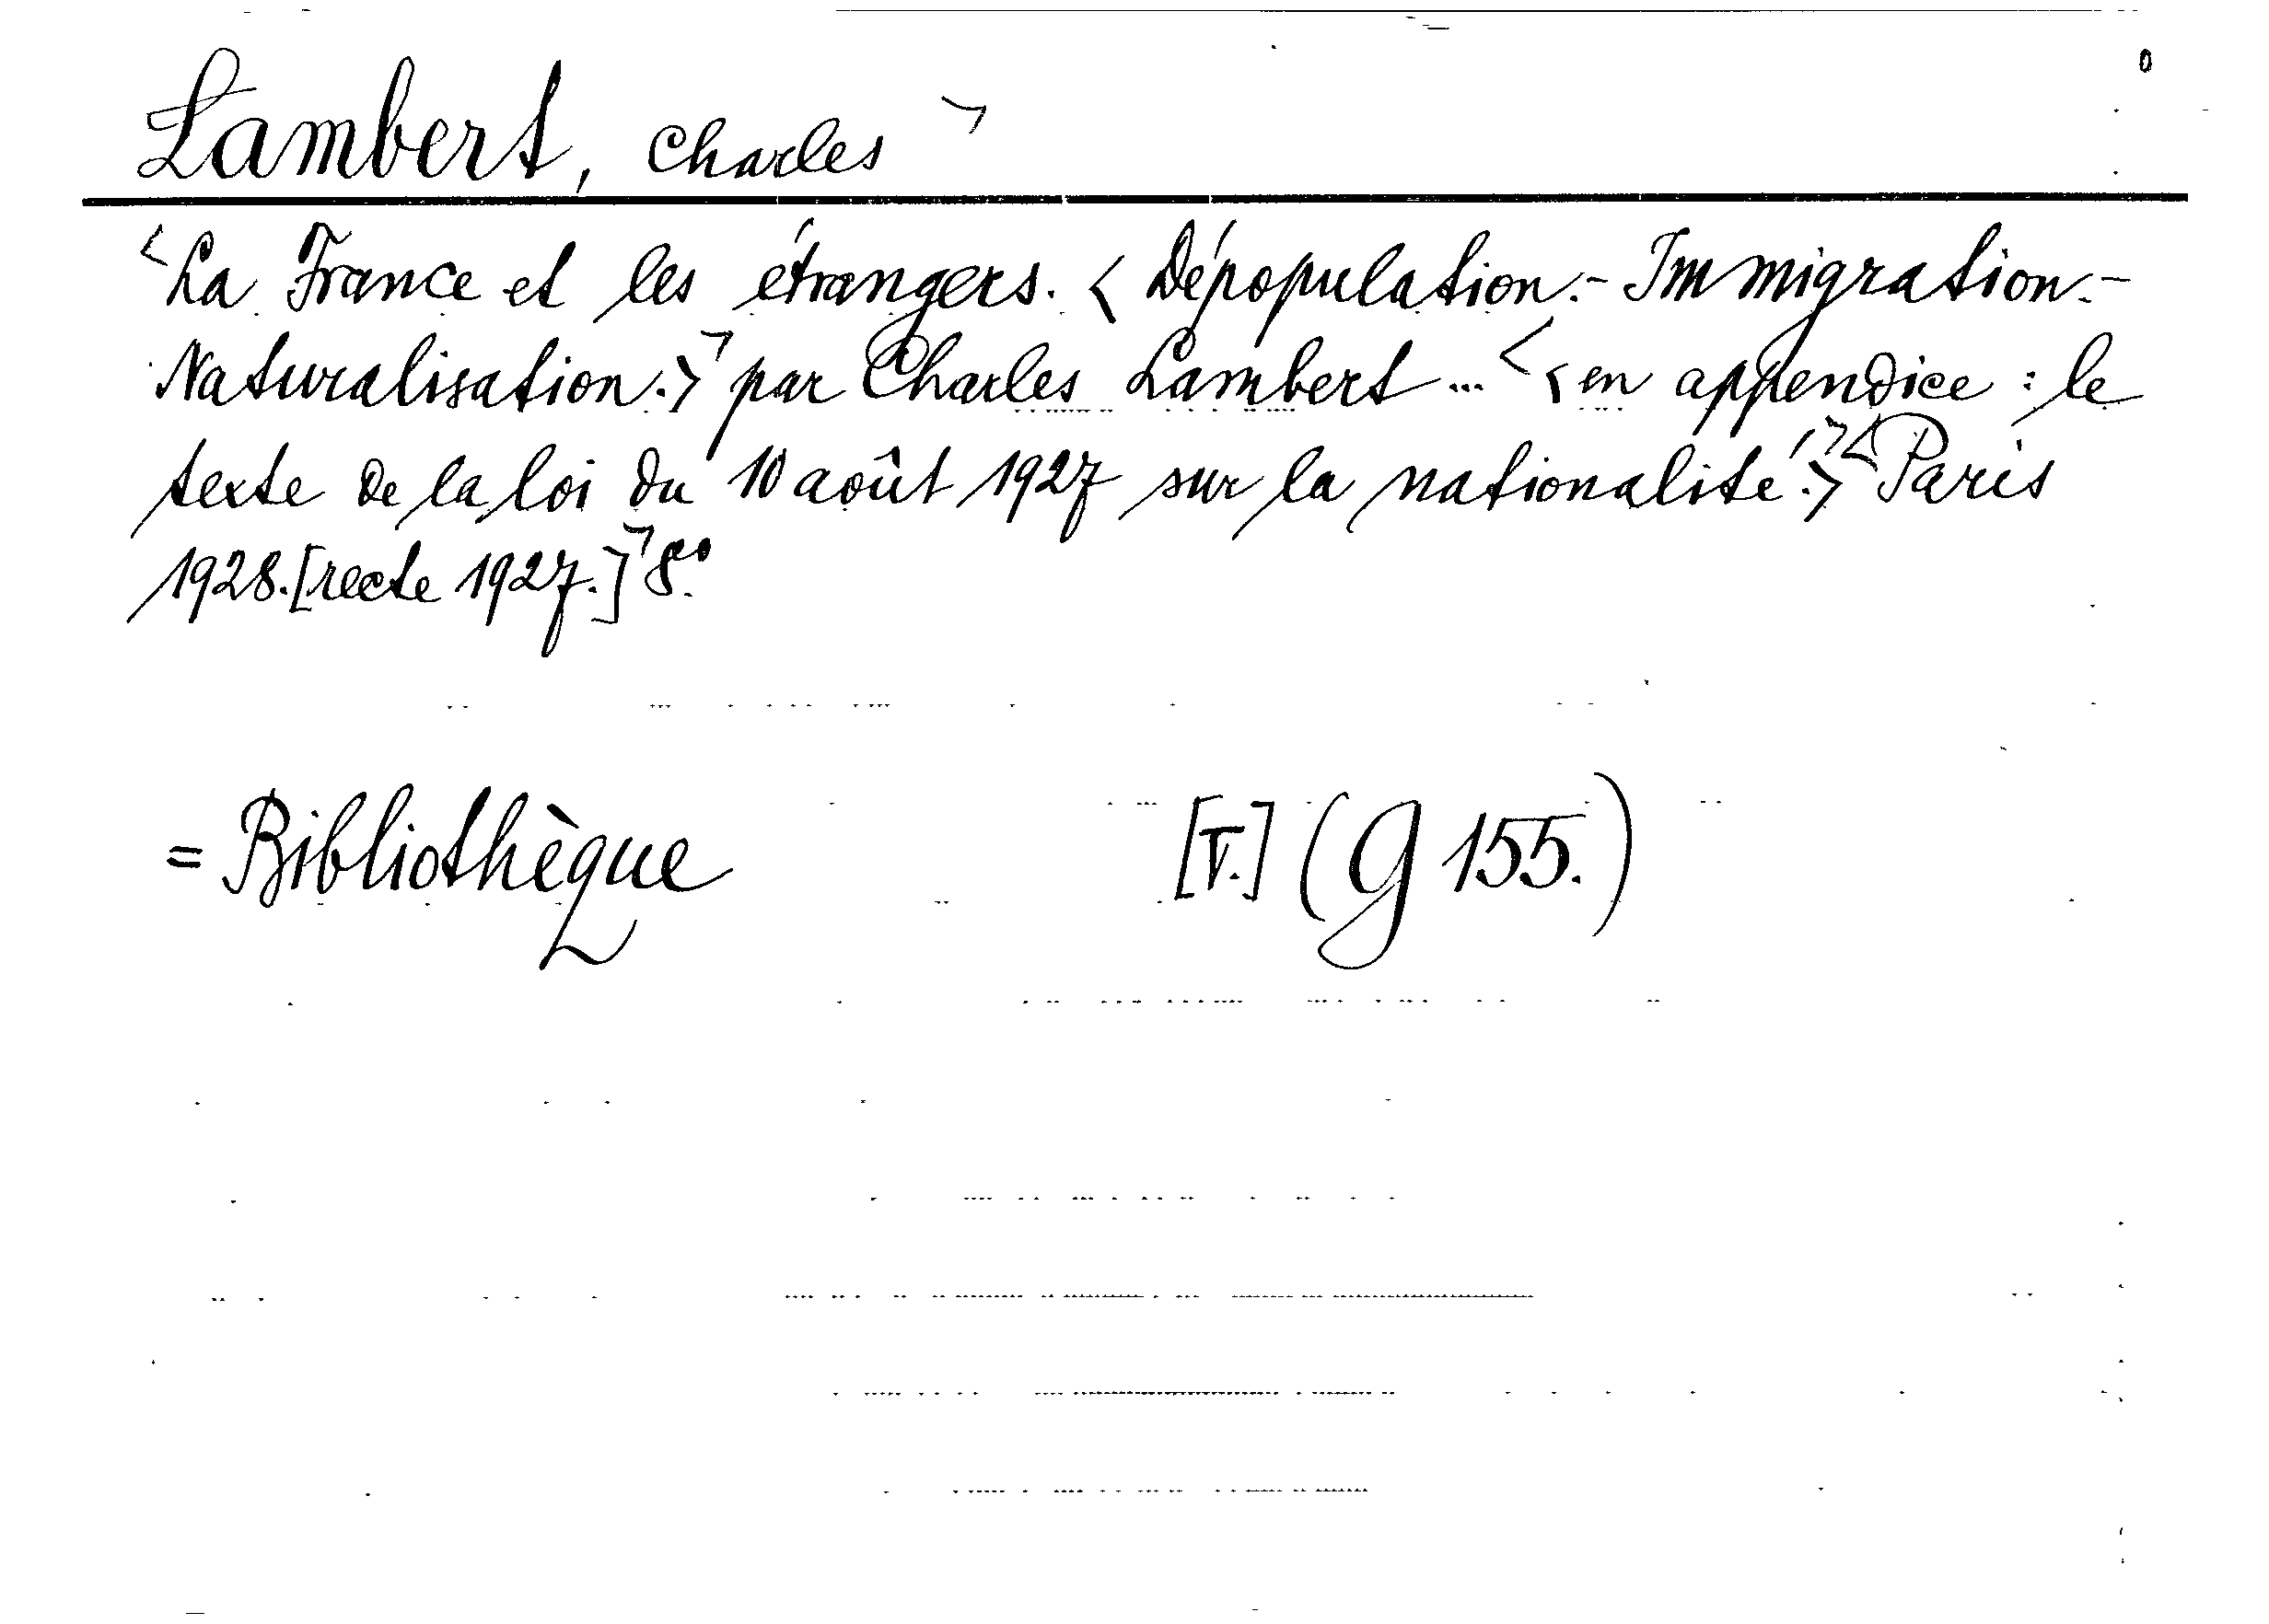 Lambert, Charles ¬
<La France et les étrangers. < Dépopulation.- Immigration.-
Naturalisation.>¬ par Charles Lambert ... < <en appendice : le
texte de la loi du 10 août 1927 sur la nationalité.>¬ <Paris
1928. [recte 1927.]¬ 8°.
= Bibliothèque [V.] (G 155.)